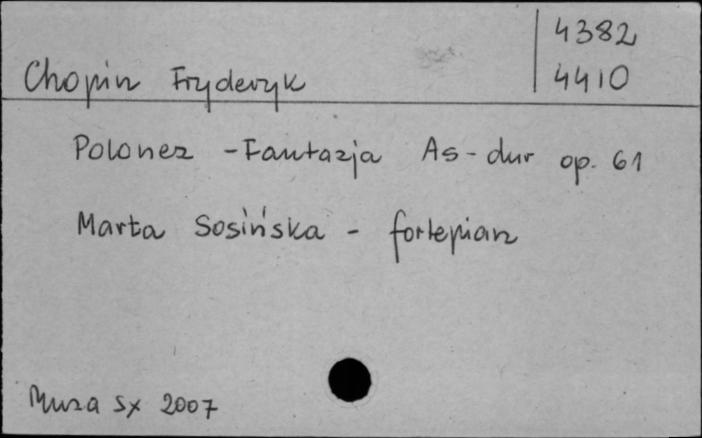 4382
Chopin Fryderyk 4410
Polonez - Fantazja As-dur op. 61
Marta Sosińska - fortepian
Muza SX 2007